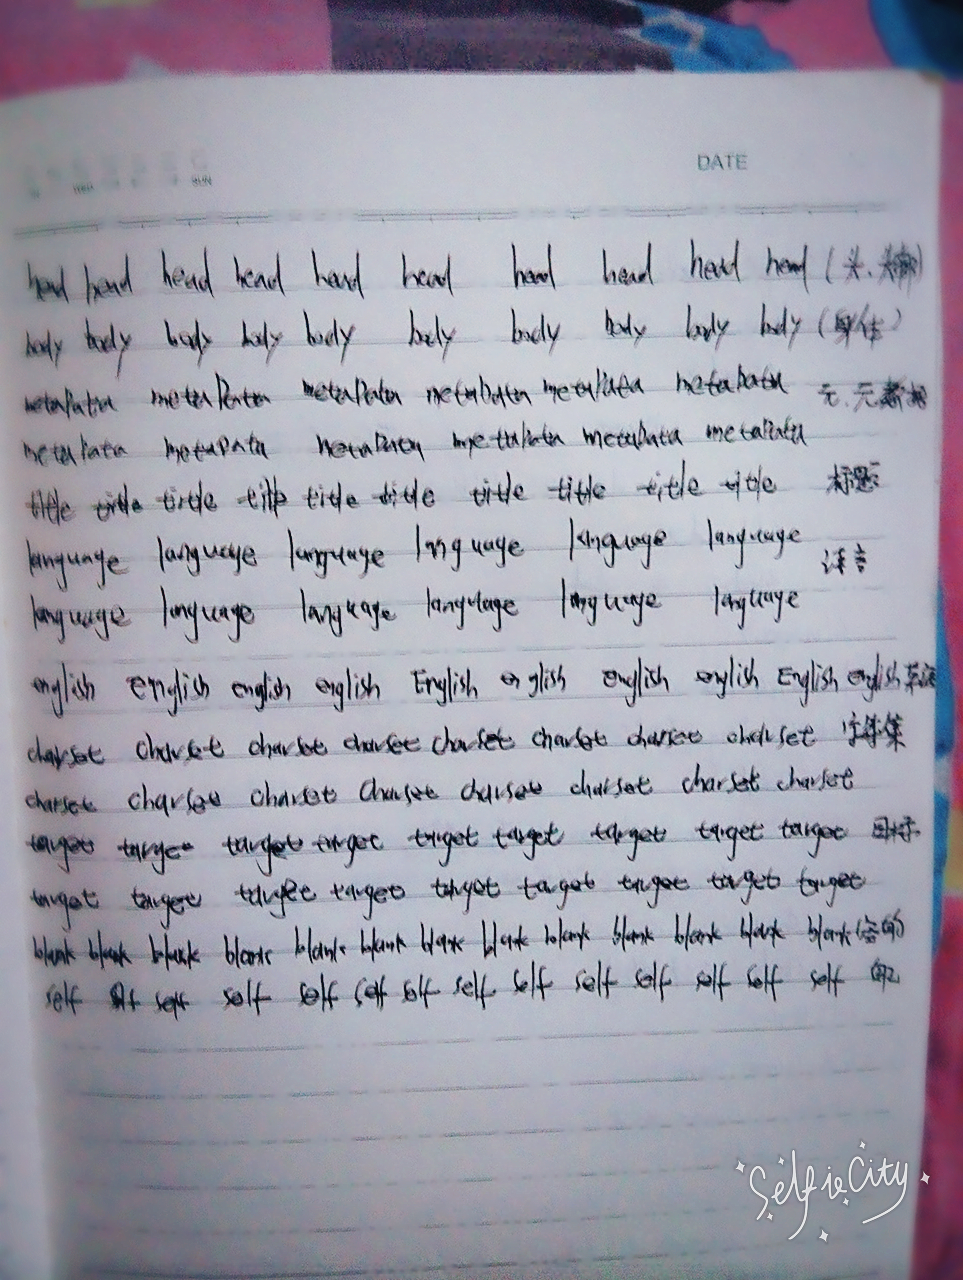 SUN
DATE
head head head head head head head head head head (头、头部)
body body body body body body body body body body (身体)
metaData metaData metaData metaData metaData metaData 元、元数据
metaData metaData metaData metaData metaData metaData
title title title title title title title title title title 标题
language language language language language language 语言
language language language language language language
english english english english English english english english English english 英语
charset charset charset charset charset charset charset charset 字符集
charset charset charset charset charset charset charset charset
target target target target target target target target target 目标
target target target target target target target target target
blank blank blank blank blank blank blank blank blank blank blank blank blank (空白)
self self self self self self self self self self self self self self 自己
SelfieCity